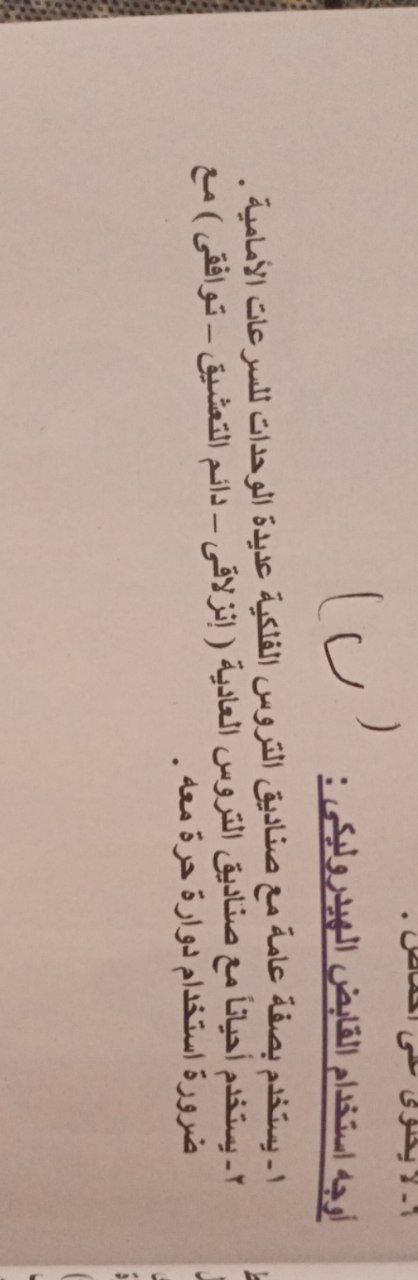 ٩- لا يحتوى على احماض .
أوجه استخدام القابض الهيدروليكى :
( ب )
١- يستخدم بصفة عامة مع صناديق التروس الفلكية عديدة الوحدات للسرعات الأمامية .
٢- يستخدم أحياناً مع صناديق التروس العادية ( إنزلاقى – دائم التعشيق – توافقى ) مع
ضرورة استخدام دوارة حرة معه .